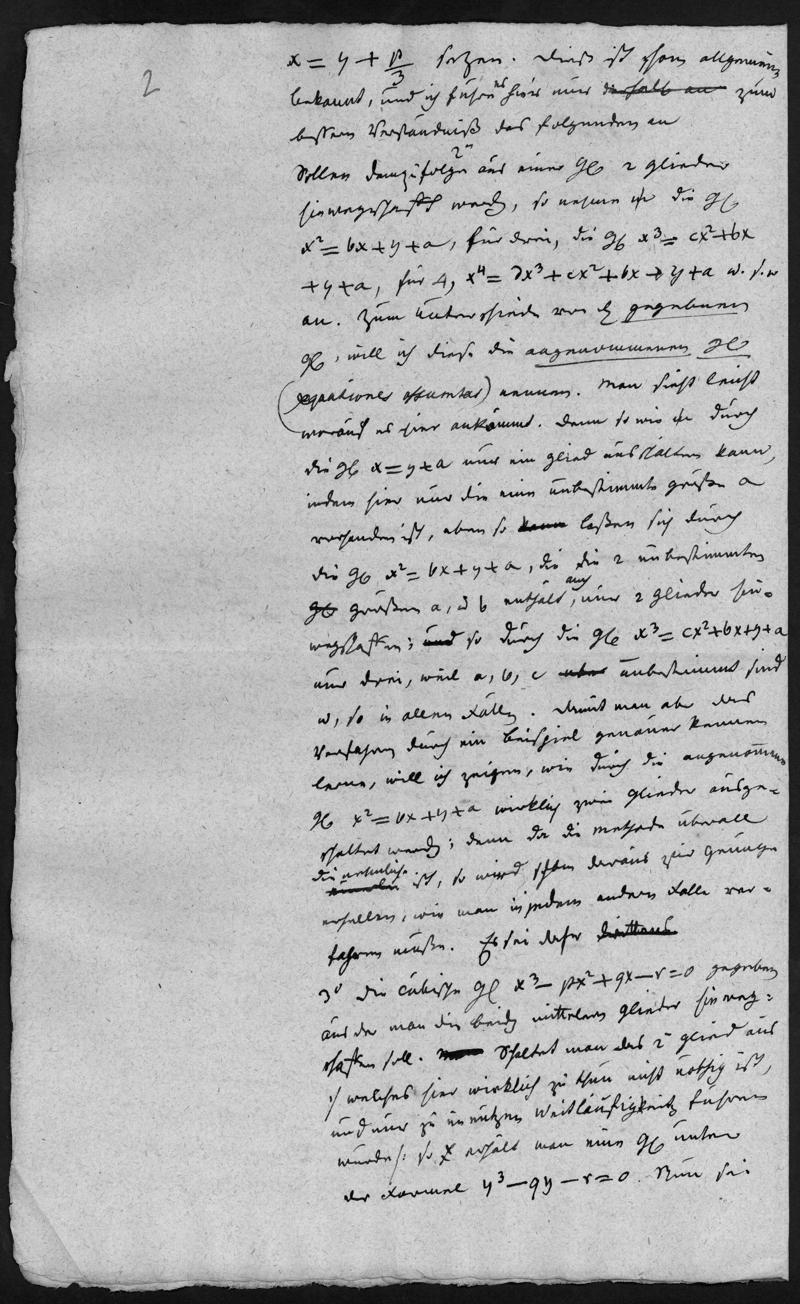 2
x = y + p/3 setzen. Dieß ist schon allgemein
bekannt, und ich führe es hier nur deshalb an zum
bessern Verständniß des folgenden an
2° Sollen demzufolge aus einer Gl 2 glieder
hinweggeschafft werden, so nehme ich die Gl
x² = bx + y + a, für drei, die Gl x³ = cx² + bx
+ y + a, für 4, x⁴ = dx³ + cx² + bx + y + a u. s. w
an. Zum Unterschiede von der gegebenen
Gl, will ich diese die angenommenen Gl
(aequationes assumtas) nennen. Man sieht leicht
worauf es hier ankömmt. Denn so wie sich durch
die Gl x = y + a nur ein glied ausschalten kann,
indem hier nur die eine unbestimmte größe a
vorhanden ist, eben so kann laßen sich durch
die Gl x² = bx + y + a, die die 2 unbestimmten
Gl größen a, u b enthält, auch nur 2 glieder hin-
wegschaffen; und so durch die Gl x³ = cx² + bx + y + a
nur drei, weil a, b, c unbestimmt sind
u, so in allen Fällen. Damit man aber das
Verfahren durch ein Beispiel genauer kennen
lerne, will ich zeigen, wie durch die angenommene
Gl x² = bx + y + a wirklich zwei glieder ausge-
schaltet werden; denn da die Methode überall
die nemliche einerlei ist, so wird schon daraus zur genüge
erhellen, wie man in jedem andern Falle ver-
fahren müße. Es sei daher
3° die cubische Gl x³ − px² + qx − r = 0 gegeben
aus der man die beiden mittlern glieder hinweg-
schaffen soll. Schaltet man das 2te glied aus
:/ welches hier wirklich zu thun nicht nöthig ist,
und nur zu unnützen Weitläufigkeiten führen
würde /: so erhält man eine Gl unter
der Formel y³ − qy − r = 0. Nun sei